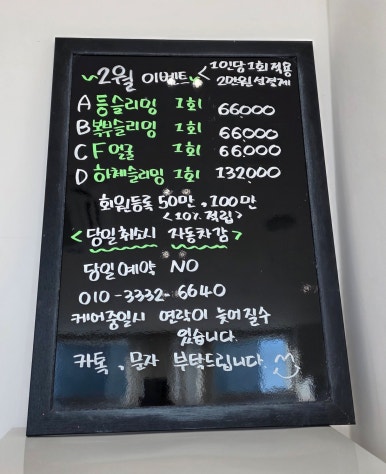 ~2월 이벤트~ <1인당 1회 적용
2만원 선결제
A 등슬리밍 1회 66,000
B 복부슬리밍 1회 66,000
C F 얼굴 1회 66,000
D 하체슬리밍 1회 132,000
회원등록 50만, 100만
<10% 적립>
<당일취소시 자동차감>
당일예약 NO
010-3332-6640
케어중일시 연락이 늦어질수
있습니다.
카톡, 문자 부탁드립니다.